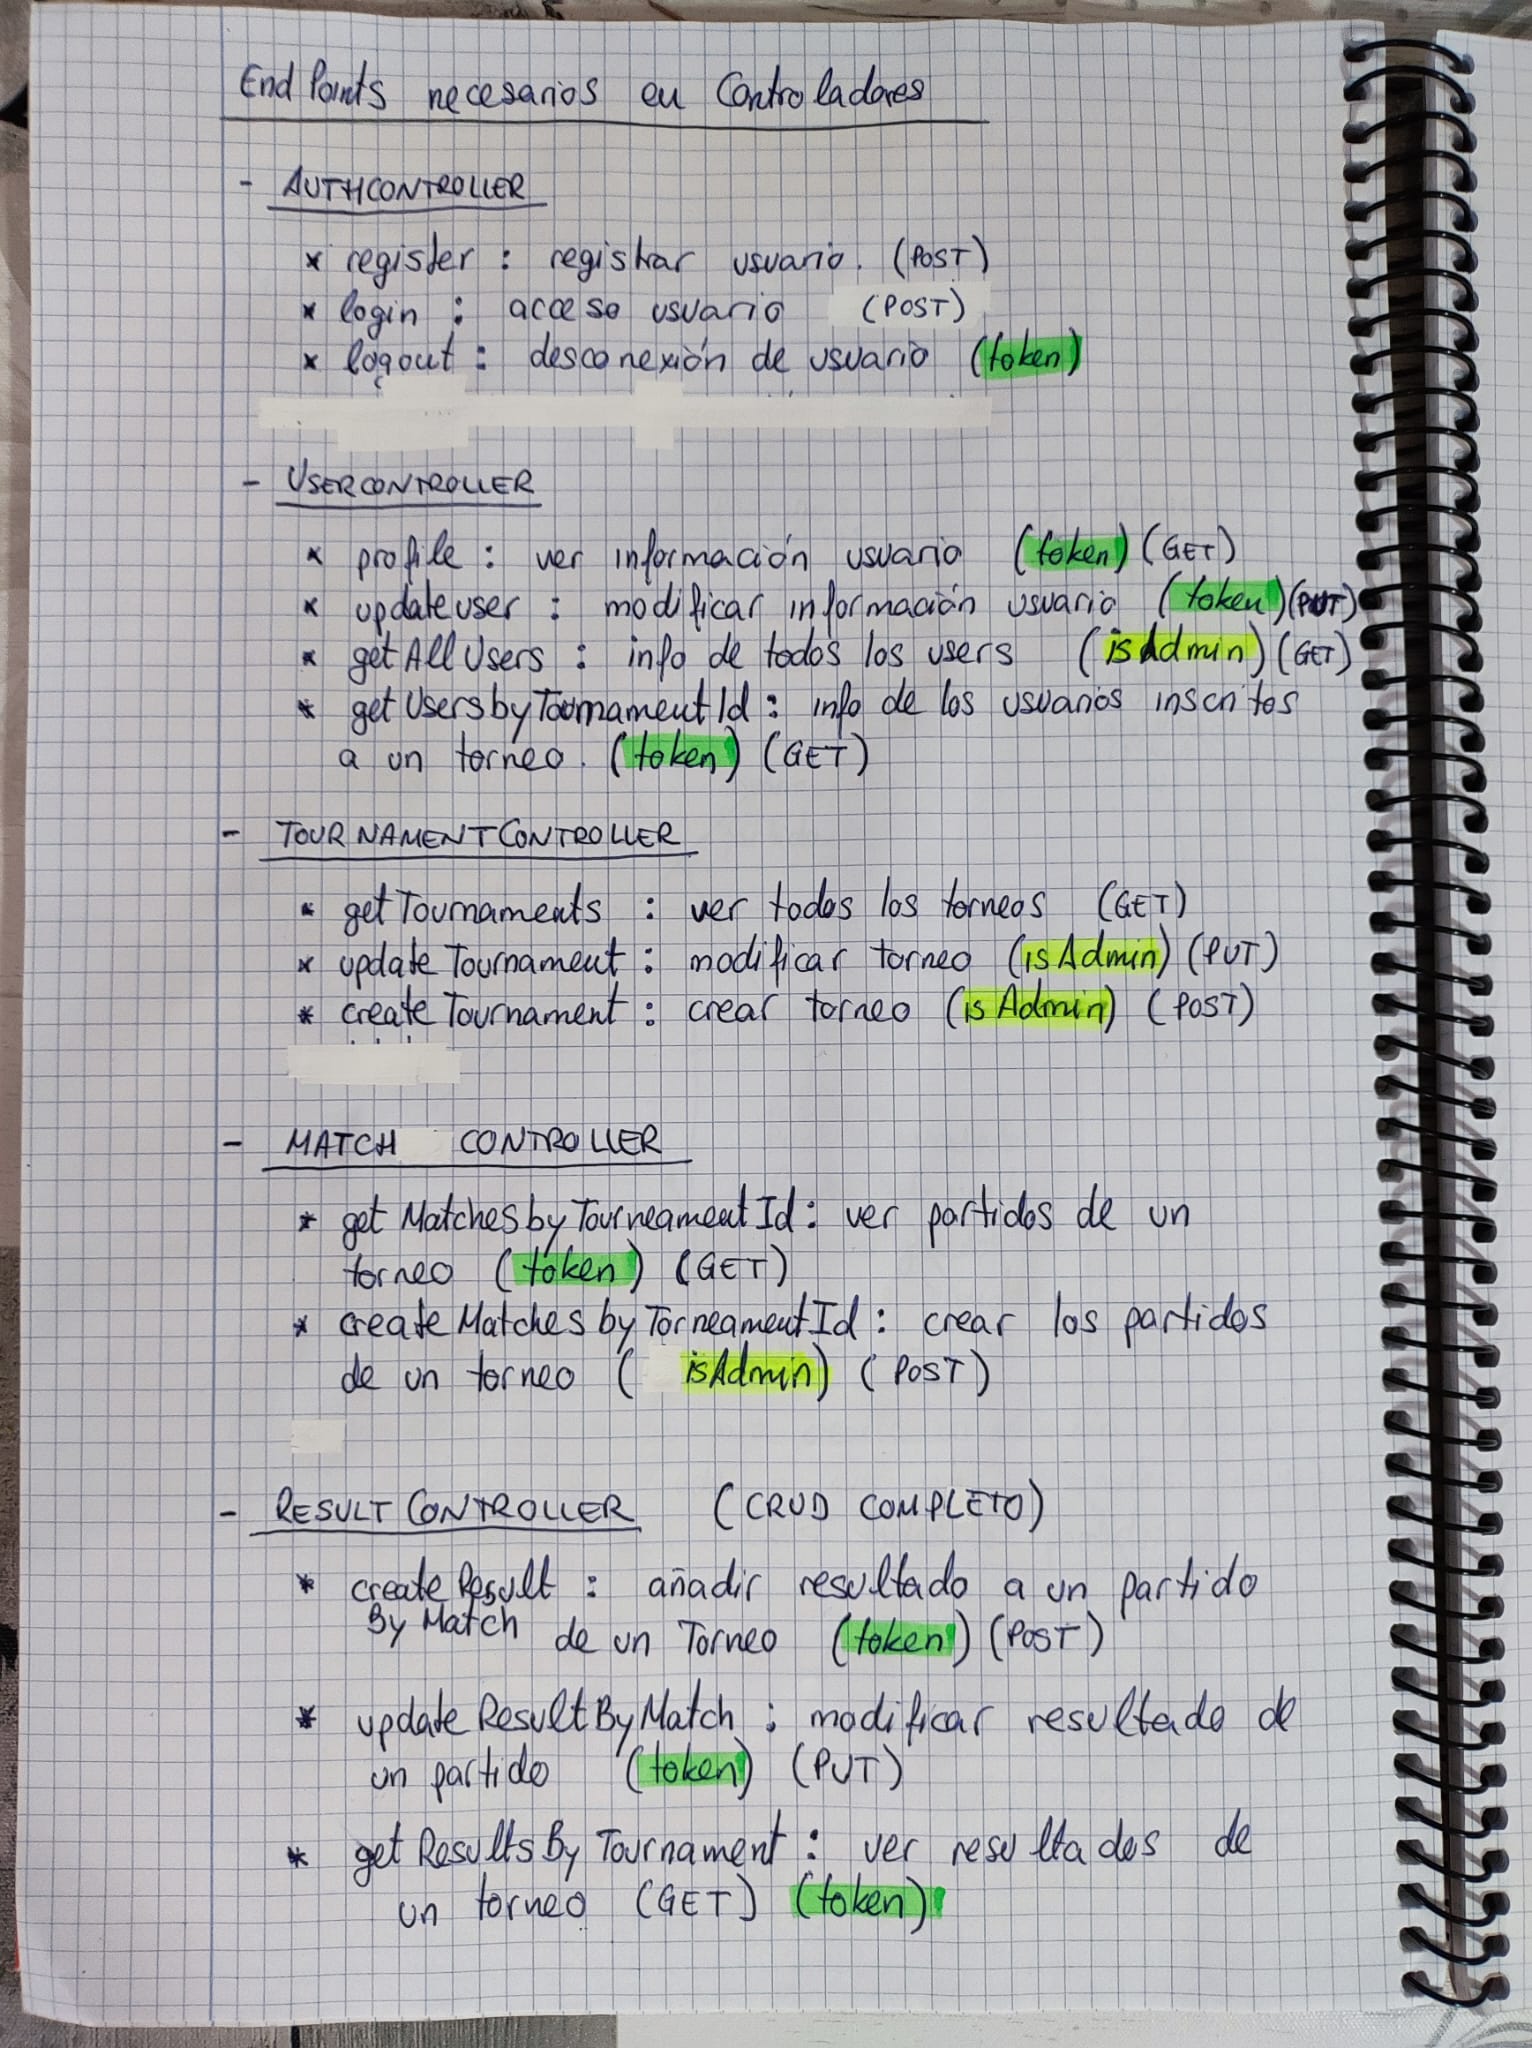 EndPoints necesarios en Controladores
- AUTHCONTROLLER
* register : registrar usuario. (POST)
* login : acceso usuario (POST)
* logout : desconexión de usuario (token)
- USERCONTROLLER
* profile : ver información usuario (token) (GET)
* updateuser : modificar información usuario (token) (PUT)
* getAllUsers : info de todos los users (isAdmin) (GET)
* getUsersbyTournamentId : info de los usuarios inscritos
a un torneo. (token) (GET)
- TOURNAMENTCONTROLLER
* getTournaments : ver todos los torneos (GET)
* updateTournament : modificar torneo (isAdmin) (PUT)
* createTournament : crear torneo (isAdmin) (POST)
- MATCH CONTROLLER
* getMatchesbyTourneamentId : ver partidos de un
torneo (token) (GET)
* createMatchesbyTorneamentId : crear los partidos
de un torneo ( isAdmin) (POST)
- RESULTCONTROLLER (CRUD COMPLETO)
* createResult : añadir resultado a un partido
By Match de un Torneo (token) (POST)
* updateResultByMatch : modificar resultado de
un partido (token) (PUT)
* getResultsByTournament : ver resultados de
un torneo (GET) (token)